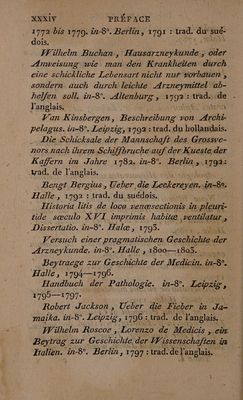 xxxiv PRÉFACE
1772 bis 1779. in-8°. Berlin, 1791 : trad. du sué-
dois.
Wilhelm Buchan, Hausarzneykunde, oder
Anweisung wie man den Krankheiten durch
eine schickliche Lebensart nicht nur vorbauen,
sondern auch durch leichte Arzneymittel ab-
helfen soll. in-8°. Altenburg, 1792 : trad. de
l'anglais.
Van Kinsbergen, Beschreibung von Archi-
pelagus. in-8°. Leipzig, 1792 : trad. du hollandais.
Die Schicksale der Mannschaft des Grosve-
nors nach ihrem Schiffbruche auf der Kueste der
Kaffern im Jahre 1782. in-8°. Berlin, 1792 :
trad. de l'anglais.
Bengt Bergius, Ueber die Leckereyen. in-8°.
Halle, 1792 : trad. du suédois.
Historia litis de loco venæsectionis in pleuri-
tide sæculo XVI imprimis habitæ ventilatur,
Dissertatio. in-8°. Halæ, 1793.
Versuch einer pragmatischen Geschichte der
Arzneykunde. in-8°. Halle, 1800—1803.
Beytraege zur Geschichte der Medicin. in-8°.
Halle, 1794—1796.
Handbuch der Pathologie. in-8°. Leipzig,
1795—1797.
Robert Jackson, Ueber die Fieber in Ja-
maika. in-8°. Leipzig, 1796 : trad. de l'anglais.
Wilhelm Roscoe, Lorenzo de Medicis, ein
Beytrag zur Geschichte der Wissenschaften in
Italien. in-8°. Berlin, 1797 : trad. de l'anglais.